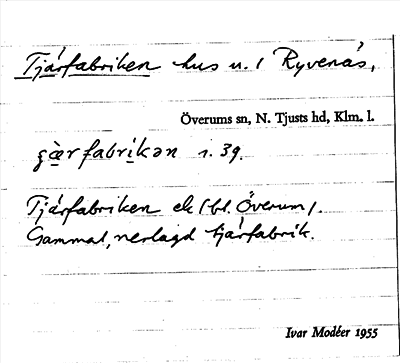 Tjärfabriken hus u. / Ryvenäs,
Överums sn, N. Tjusts hd, Klm. l.
ɕæ̀rfabrikən i. 39.
Tjärfabriken ek (bl. Överum).
Gammal, nerlagd tjärfabrik.
Ivar Modéer 1955